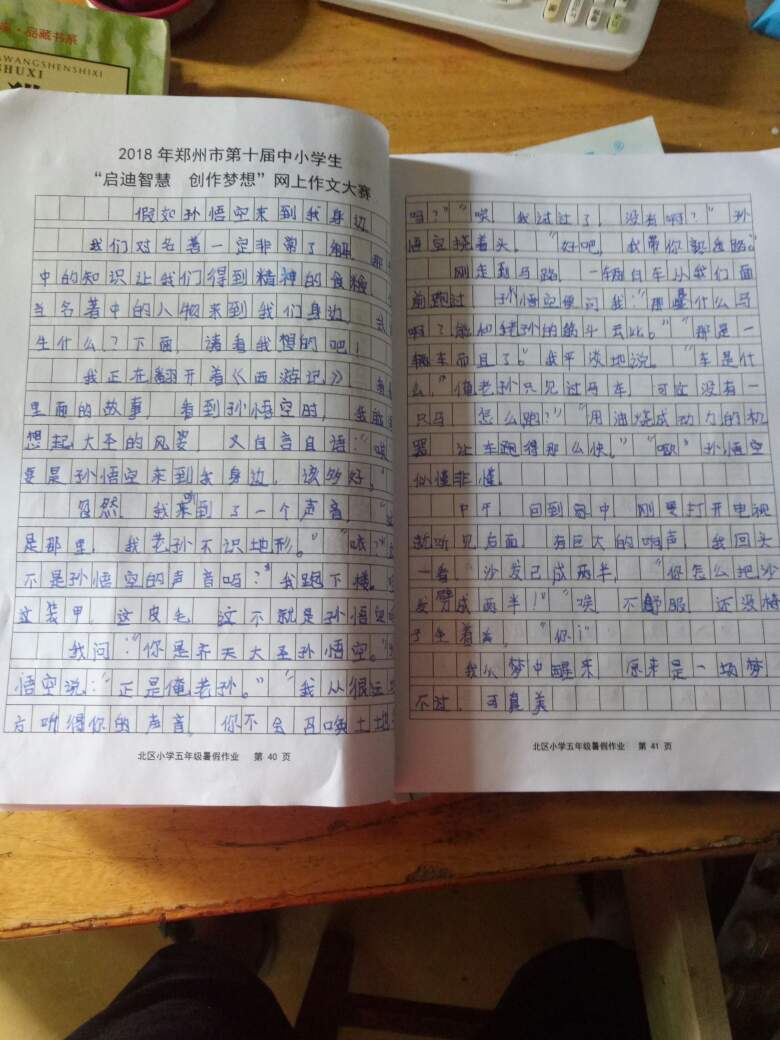 品藏书系
WANGSHENSHIXI
SHUXI
2018 年郑州市第十届中小学生
“启迪智慧 创作梦想”网上作文大赛
假如孙悟空来到我身边
我们对名著一定非常了解,那
中的知识让我们得到精神的食粮,
当名著中的人物来到我们身边,会
生什么?下面,请看我想的吧!
我正在翻开着《西游记》
里面的故事,看到孙悟空时,
想起大圣的风姿,又自言自语:“唉
要是孙悟空来到我身边,该多好。”
忽然,我听到了一个声音,
是那里,我老孙不识地形。”“咦?
不是孙悟空的声音吗?”我跑下楼。
这装甲,这皮毛,这不就是孙悟空
我问:“你是齐天大圣孙悟空。”
悟空说:“正是俺老孙。”“我从很远
方听得你的声音,你不会召唤土地
北区小学五年级暑假作业 第 40 页
吗?”“唉,我试过了,没有啊?”孙
悟空挠着头。“好吧,我带你认识路。”
刚走到马路,一辆白车从我们面
前跑过,孙悟空便问我:“那是什么马
啊?能如老孙的筋斗云比。”“那是一
辆车而且了。”我平淡地说。“车是什
么,”俺老孙只见过马车,可它没有一
只马,怎么跑?”“用油烧成动力的机
器,让车跑得那么快。”“哦”孙悟空
似懂非懂。
中午,回到家中,刚要打开电视
就听见后面,有巨大的响声,我回头
一看,“沙发已成两半,“你怎么把沙
发劈成两半!”“唉,不舒服,还没椅
子坐着
“你!”
我从梦中醒来,原来是一场梦
不过,可真美
北区小学五年级暑假作业 第 41 页